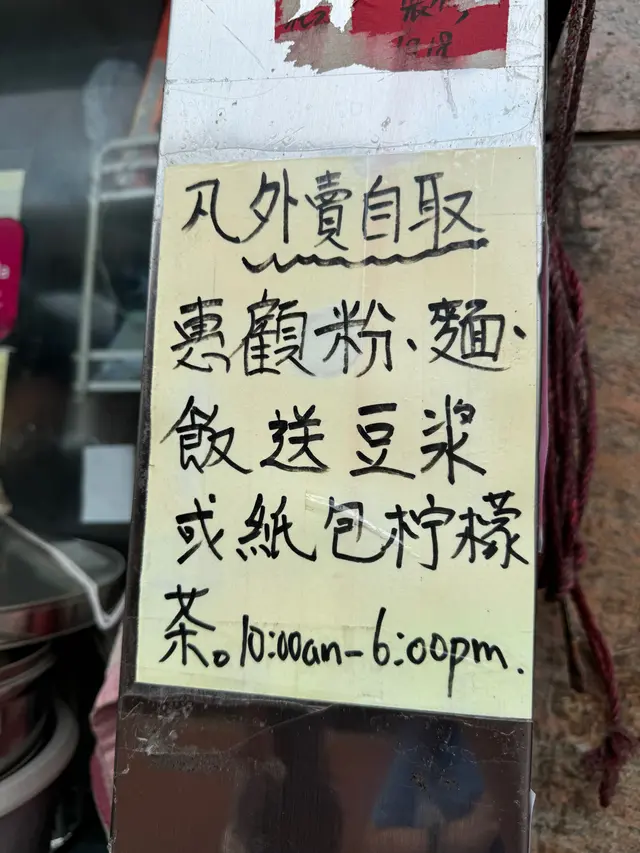 凡外賣自取
惠顧粉、麵、
飯送豆浆
或紙包柠檬
茶。10:00am-6:00pm.